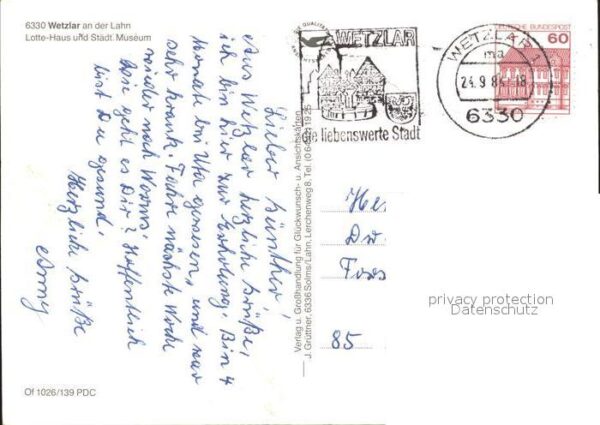 6330 Wetzlar an der Lahn
Lotte-Haus und Städt. Museum
Lieber Günther!
Aus Wetzlar herzliche Grüße,
ich bin hier zur Erholung. Bin 4
Monate bei Uta gewesen, und war
sehr krank. Fahre nächste Woche
wieder nach Worms.
Wie geht es Dir? Hoffentlich
bist Du gesund.
Herzliche Grüße
Anny
Of 1026/139 PDC
Verlag u. Großhandlung für Glückwunsch- u. Ansichtskarten
J. Grüttner, 6336 Solms/Lahn, Lerchenweg 8, Tel. (0 64
WETZLAR
die liebenswerte Stadt
WETZLAR 1
ma
24.9.84
18
6330
DEUTSCHE BUNDESPOST
60
He
Dr
85
privacy protection
Datenschutz